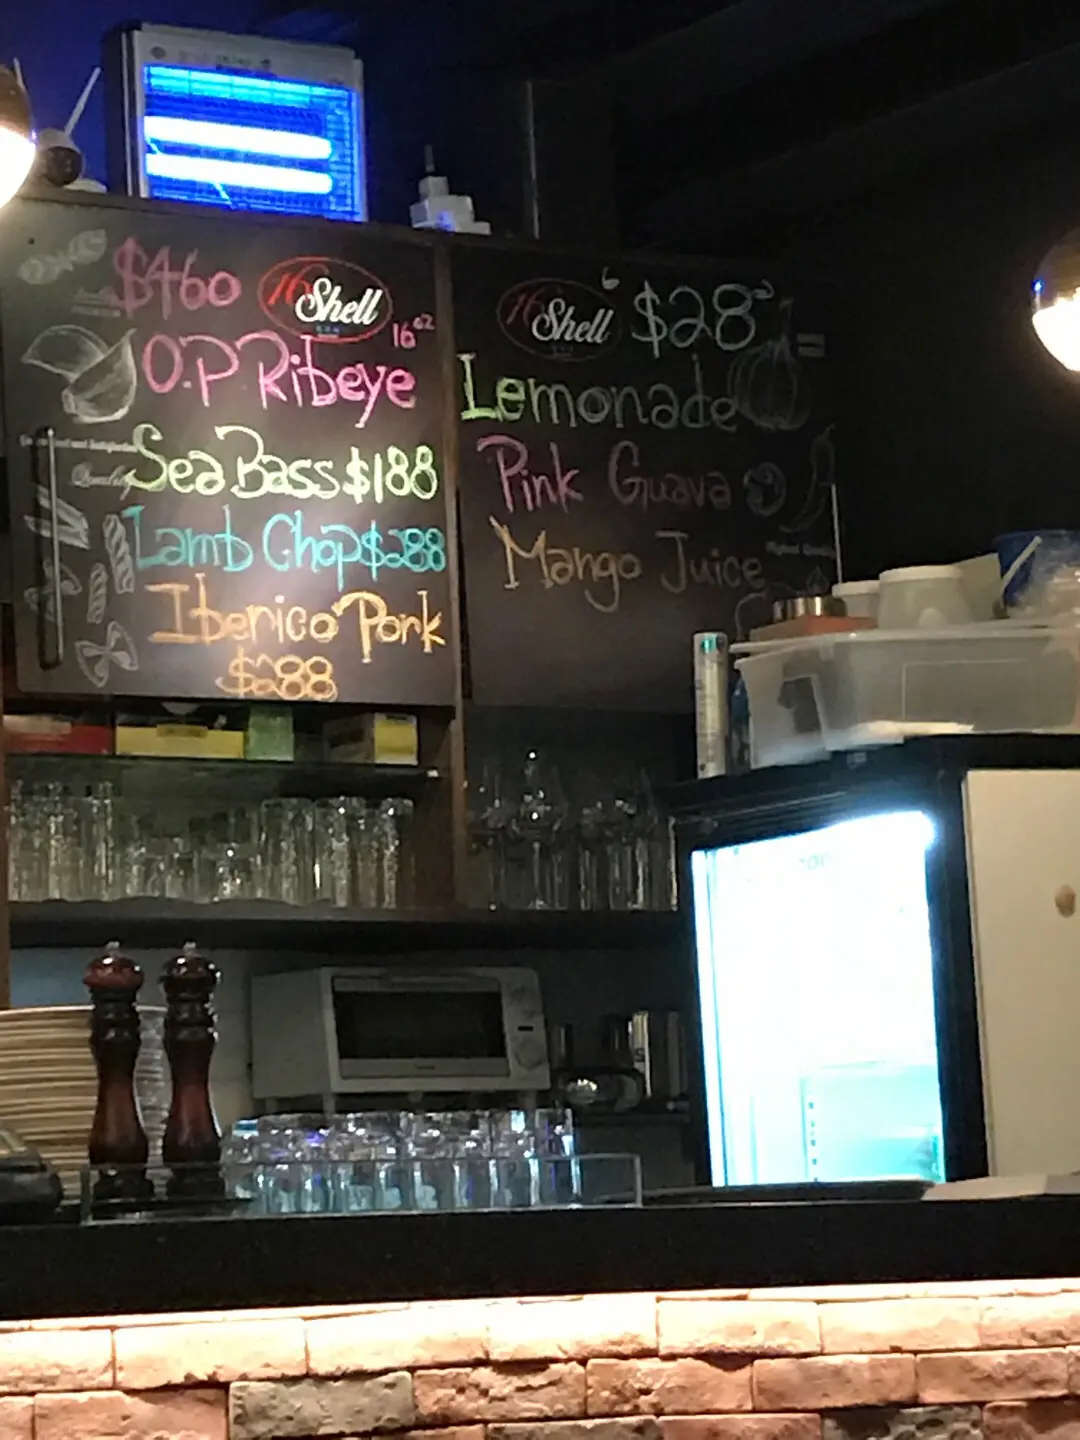 $460
16 Shell
16oz
O.P Ribeye
Sea Bass $188
Quality
Lamb Chop $288
Iberico Pork
$288
16 Shell
$28
Lemonade
Pink Guava
Mango Juice